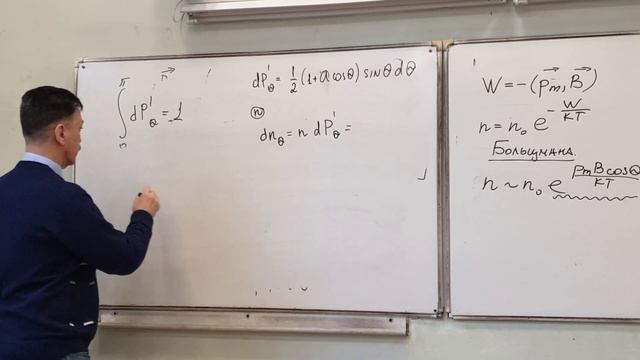 ∫₀^π dP'_θ = 1
dP'_θ = 1/2 (1+a cosθ) sinθ dθ
n
dn_θ = n dP'_θ =
W = -(p⃗m, B⃗)
n = n₀ e^(-W/KT)
Больцмана.
n ~ n₀ e^(PmBcosθ/KT)